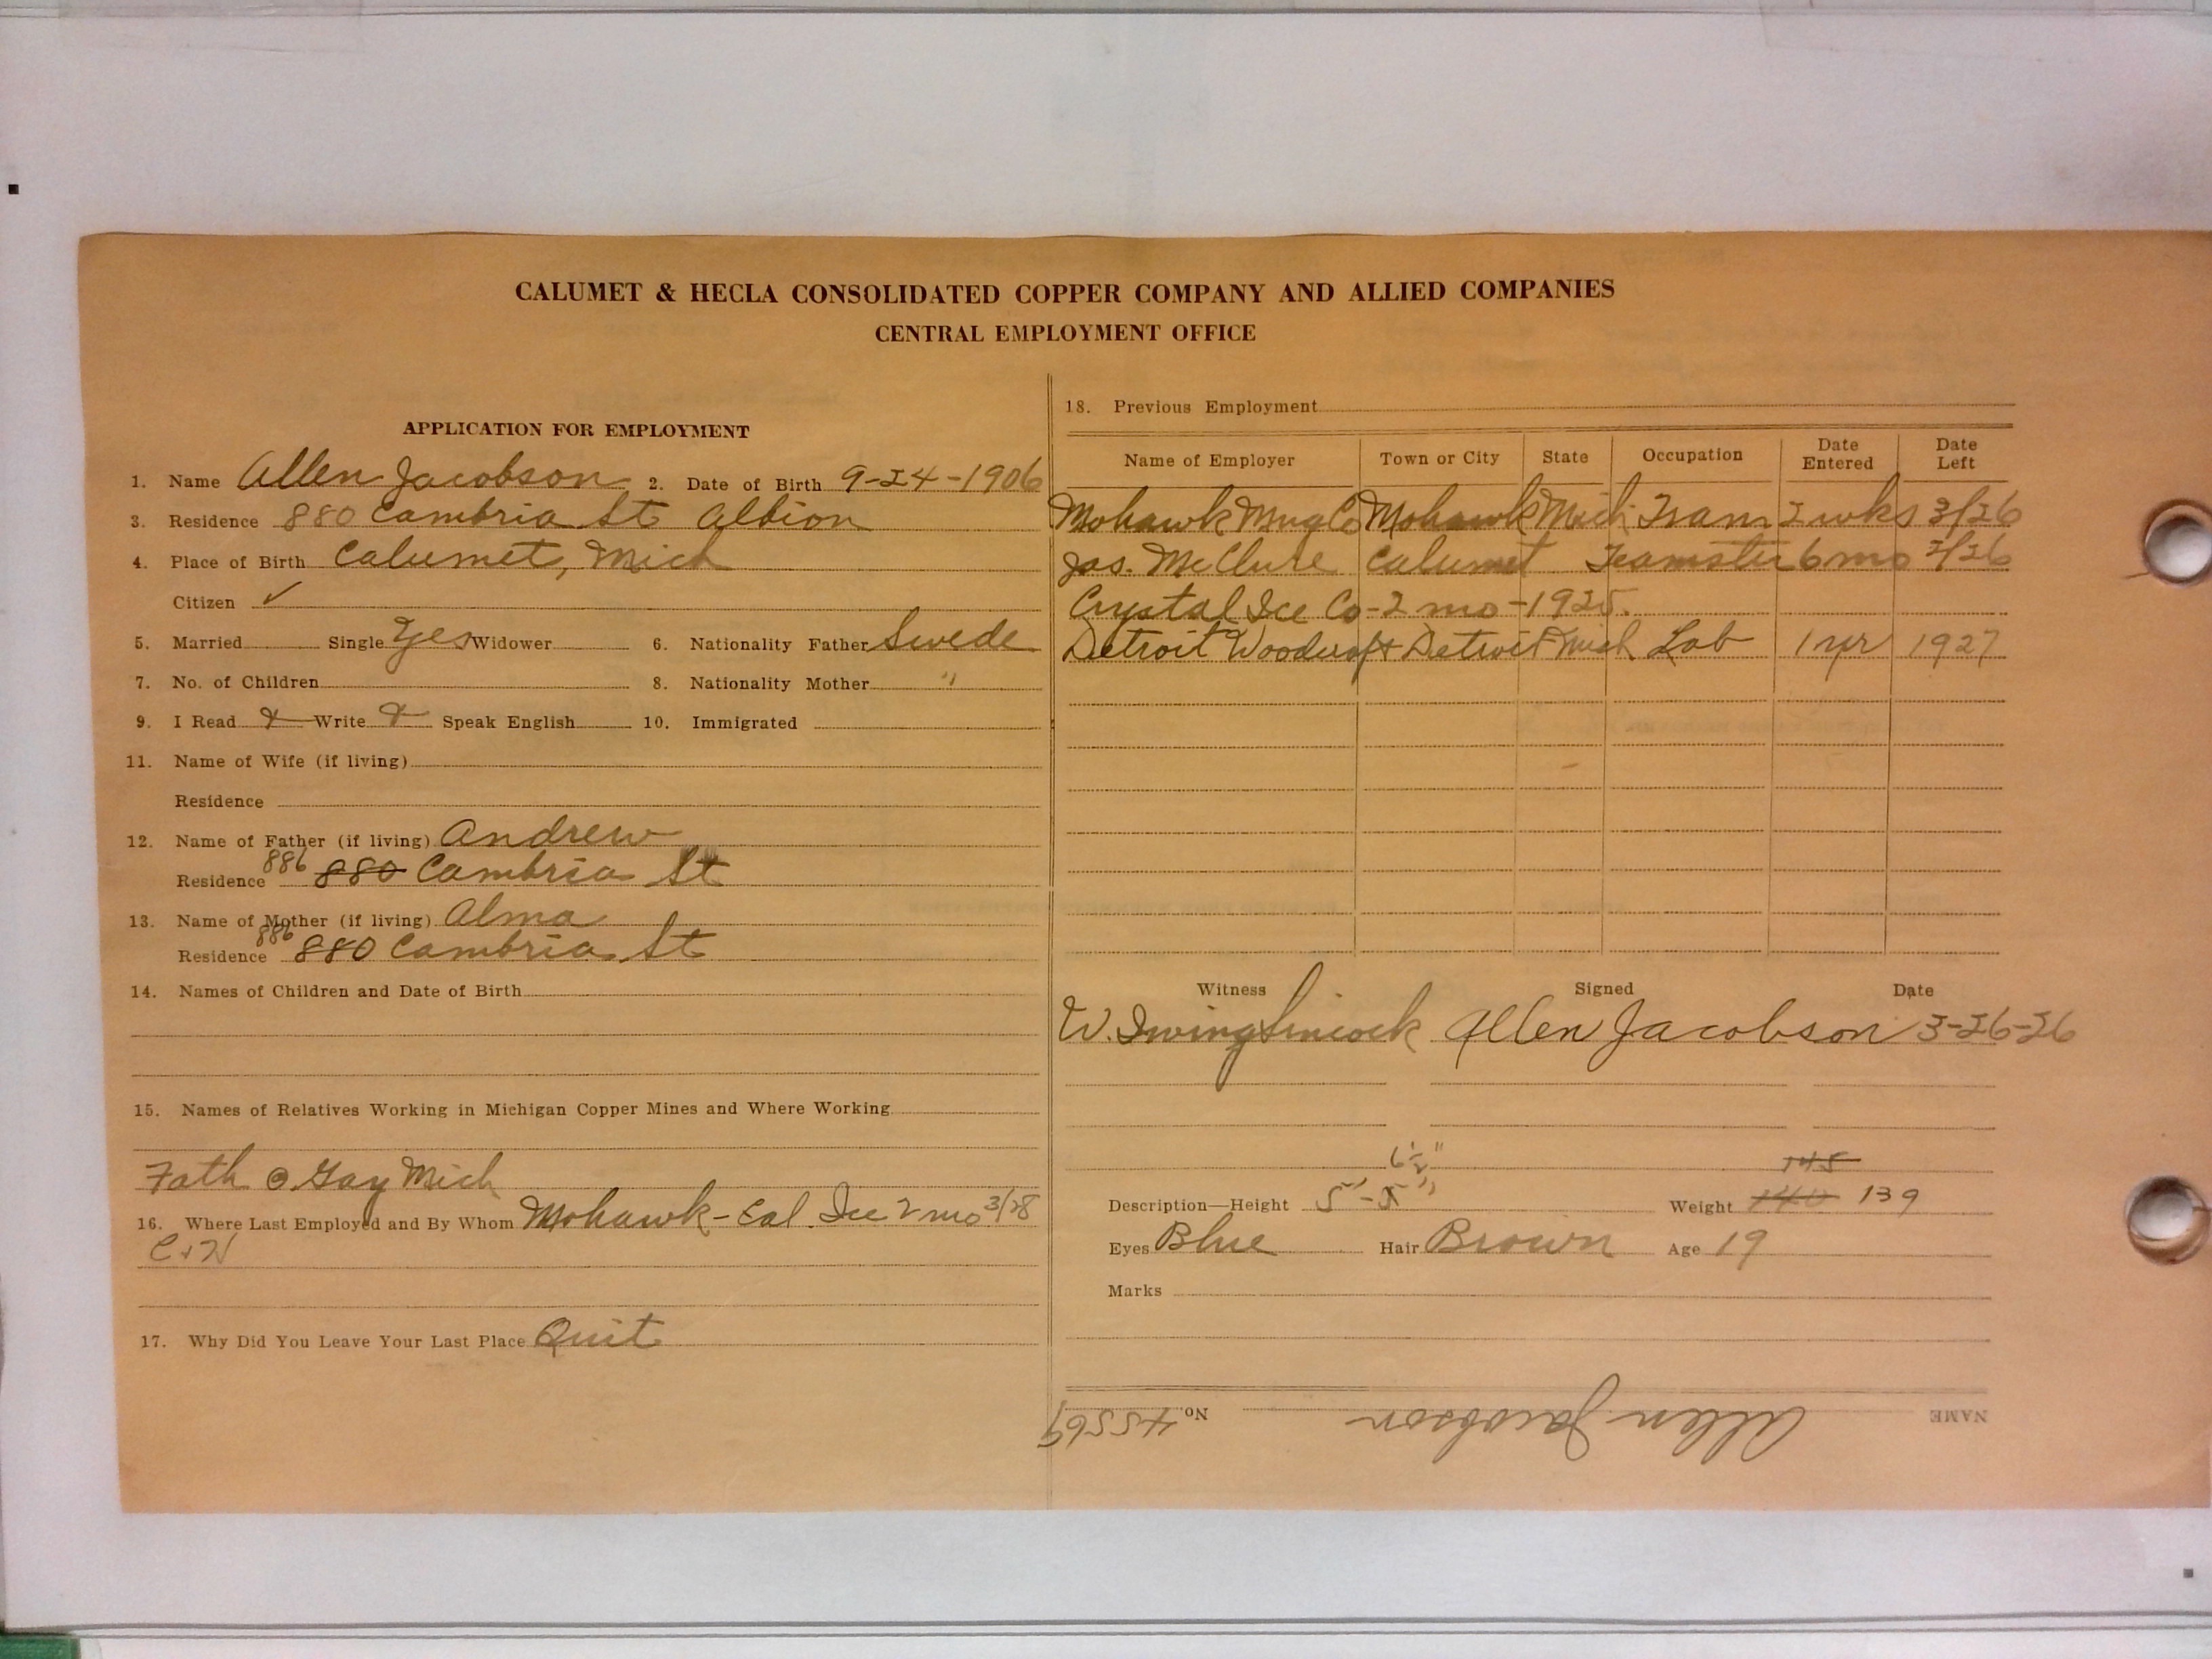 CALUMET & HECLA CONSOLIDATED COPPER COMPANY AND ALLIED COMPANIES
CENTRAL EMPLOYMENT OFFICE
APPLICATION FOR EMPLOYMENT
1. Name Allen Jacobson 2. Date of Birth 9-24-1906
3. Residence 880 Cambria St Albion
4. Place of Birth Calumet, Mich
Citizen ✓
5. Married Single Yes Widower 6. Nationality Father Swede
7. No. of Children 8. Nationality Mother "
9. I Read x Write x Speak English 10. Immigrated
11. Name of Wife (if living)
Residence
12. Name of Father (if living) Andrew
Residence 886 880 Cambria St
13. Name of Mother (if living) Alma
Residence 886 880 Cambria St
14. Names of Children and Date of Birth
15. Names of Relatives Working in Michigan Copper Mines and Where Working
Fath @ Gay Mich
16. Where Last Employed and By Whom Mohawk - Cal. Ice 2 mo 3/28
C+H
17. Why Did You Leave Your Last Place Quit
18. Previous Employment
Name of Employer Town or City State Occupation Date Entered Date Left
Mohawk Mng Co Mohawk Mich Tram 2 wks 3/26
Jas. McClure Calumet Teamster 6 mo 2/26
Crystal Ice Co - 2 mo - 1925.
Detroit Woodcraft Detroit Mich Lab 1 yr 1927
Witness Signed Date
W. Irving Sincock Allen Jacobson 3-26-26
6½"
145
Description—Height 5'-5" Weight 140 139
Eyes Blue Hair Brown Age 19
Marks
NAME Allen Jacobson No. 45569